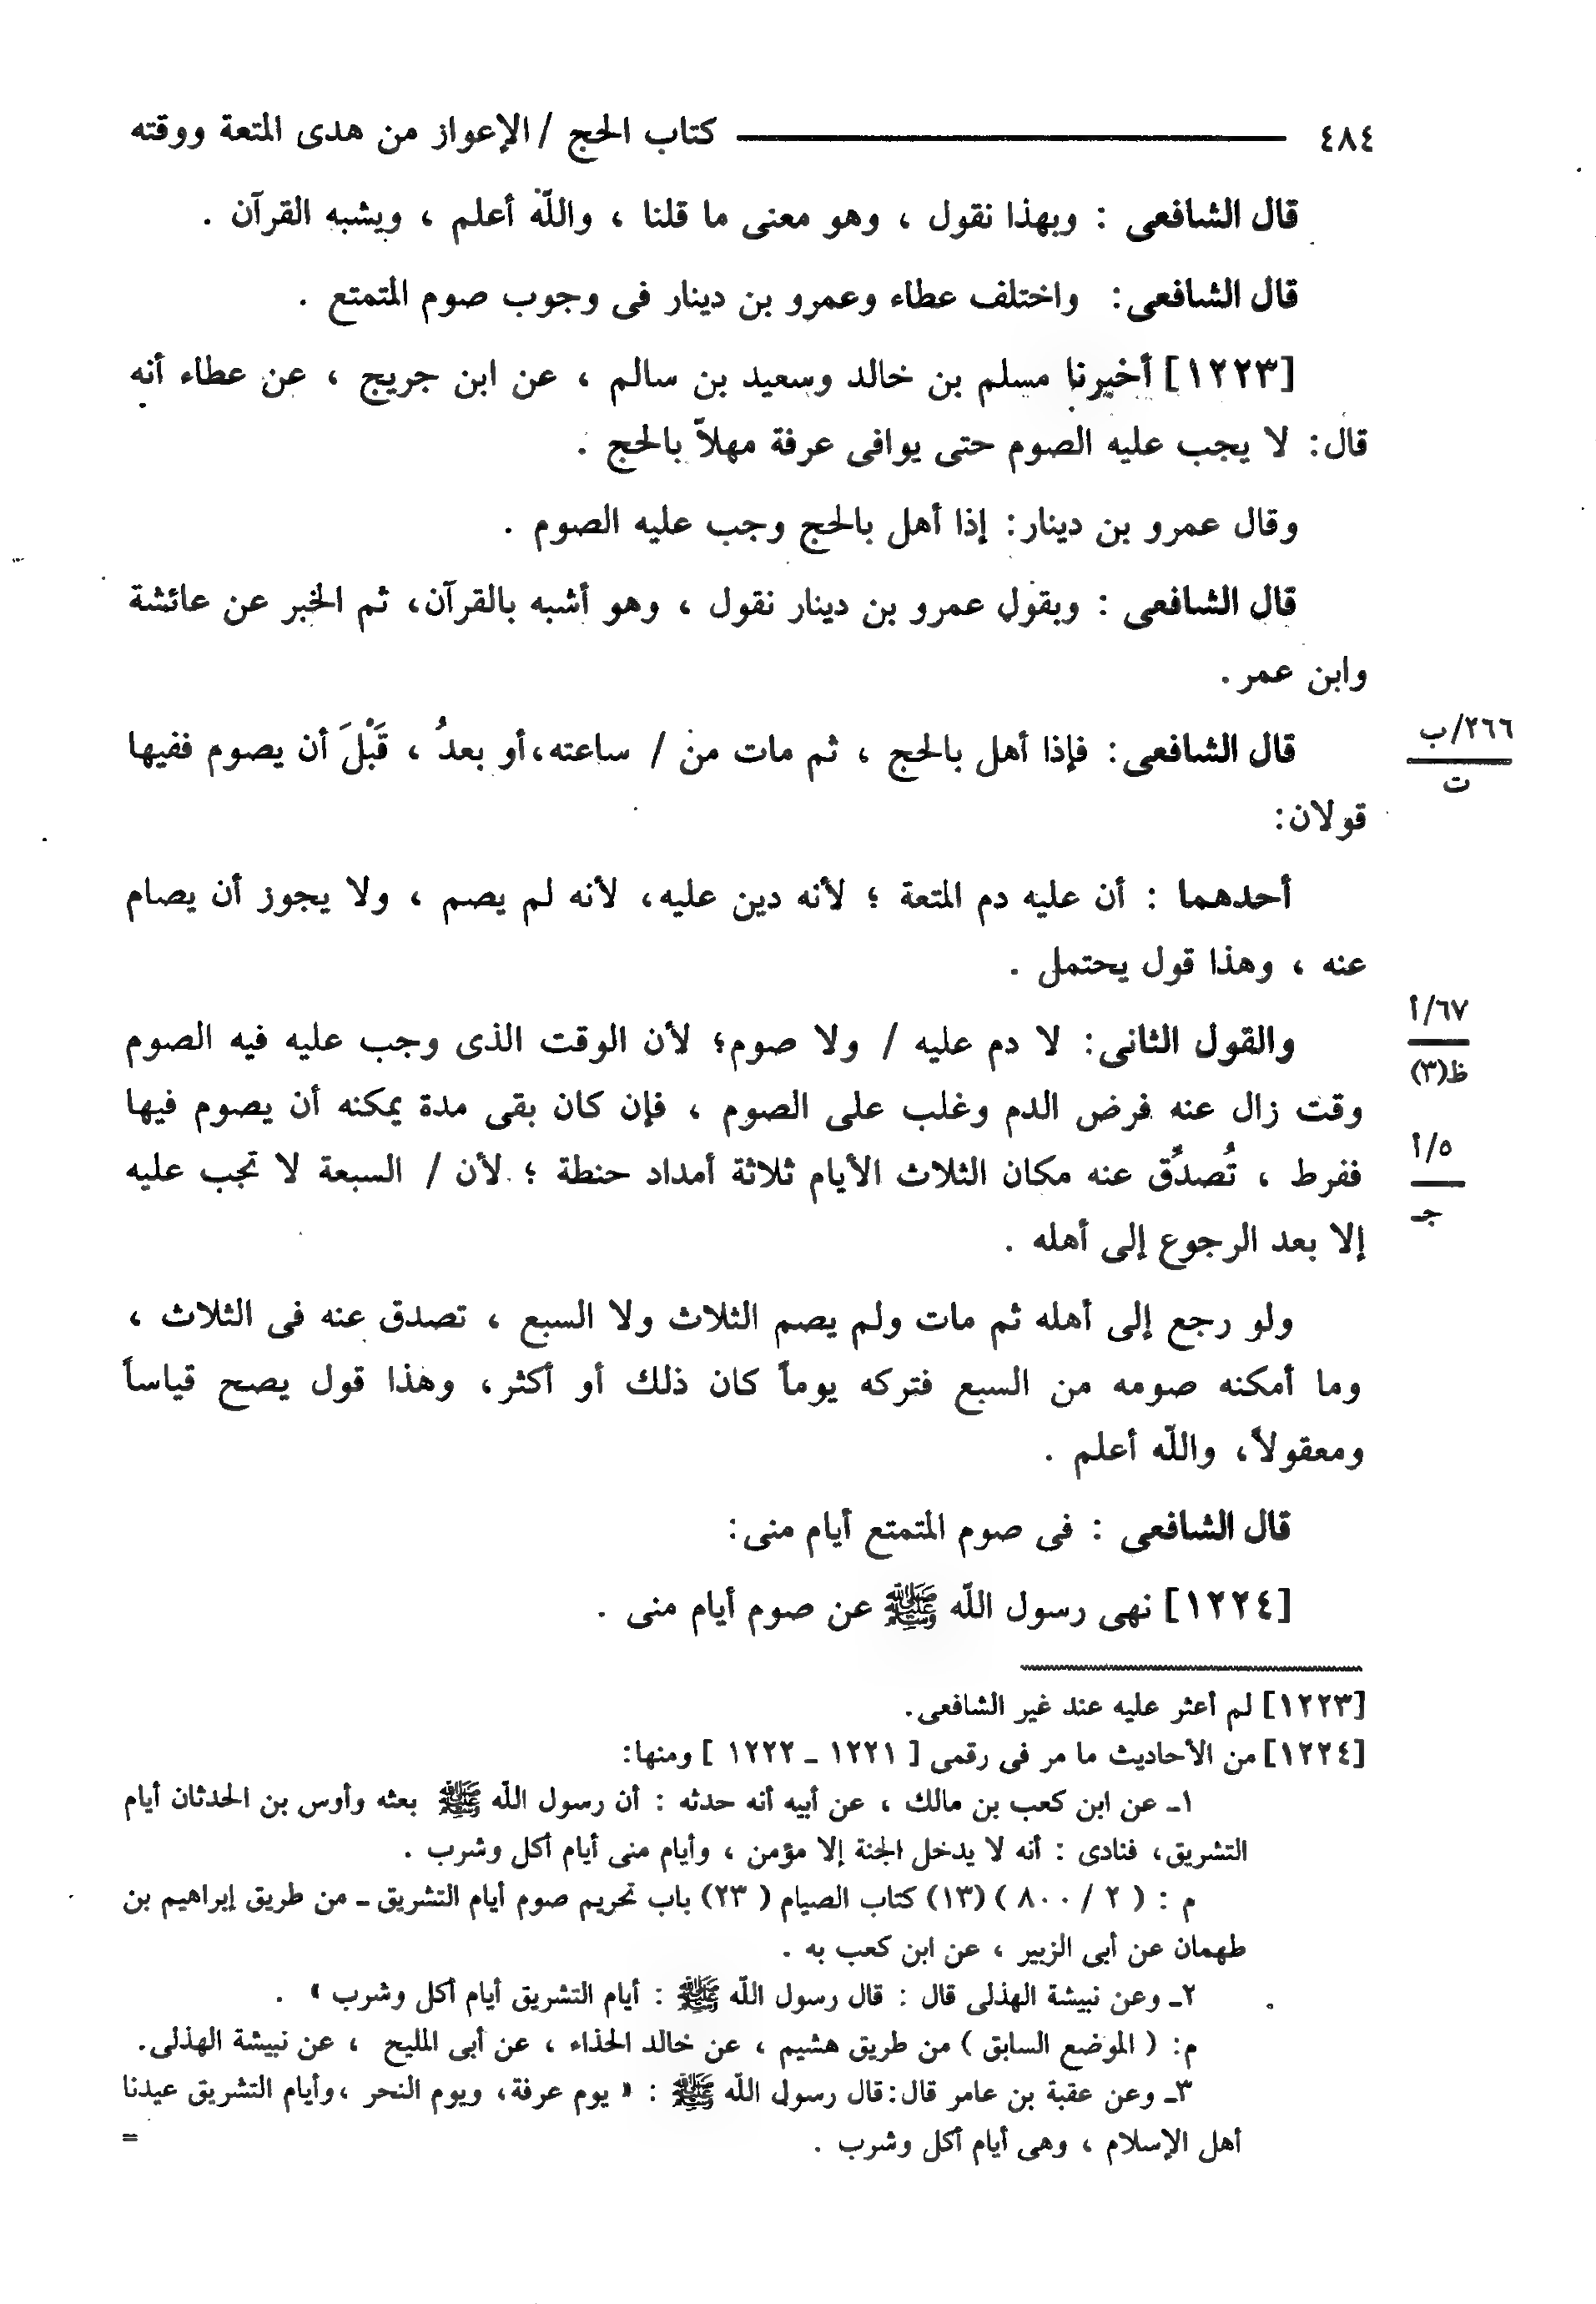 ٤٨٤ كتاب الحج / الإعواز من هدى المتعة ووقته
قال الشافعى : وبهذا نقول ، وهو معنى ما قلنا ، واللّه أعلم ، ويشبه القرآن .
قال الشافعى: واختلف عطاء وعمرو بن دينار فى وجوب صوم المتمتع .
[١٢٢٣] أخبرنا مسلم بن خالد وسعيد بن سالم ، عن ابن جريج ، عن عطاء أنه
قال: لا يجب عليه الصوم حتى يوافى عرفة مهلاً بالحج .
وقال عمرو بن دينار: إذا أهل بالحج وجب عليه الصوم .
قال الشافعى : وبقول عمرو بن دينار نقول ، وهو أشبه بالقرآن، ثم الخبر عن عائشة
وابن عمر .
قال الشافعى: فإذا أهل بالحج ، ثم مات من / ساعته،أو بعدُ ، قَبْلَ أن يصوم ففيها
٢٦٦/ب
ت
قولان:
أحدهما : أن عليه دم المتعة ؛ لأنه دين عليه، لأنه لم يصم ، ولا يجوز أن يصام
عنه ، وهذا قول يحتمل .
والقول الثانى: لا دم عليه / ولا صوم؛ لأن الوقت الذى وجب عليه فيه الصوم
٦٧/أ
ظ(٣)
وقت زال عنه فرض الدم وغلب على الصوم ، فإن كان بقى مدة يمكنه أن يصوم فيها
ففرط ، تُصدِّق عنه مكان الثلاث الأيام ثلاثة أمداد حنطة ؛ لأن / السبعة لا تجب عليه
٥/أ
جـ
إلا بعد الرجوع إلى أهله .
ولو رجع إلى أهله ثم مات ولم يصم الثلاث ولا السبع ، تصدق عنه فى الثلاث ،
وما أمكنه صومه من السبع فتركه يوماً كان ذلك أو أكثر، وهذا قول يصح قياساً
ومعقولاً، واللّه أعلم .
قال الشافعى : فى صوم المتمتع أيام منى:
[١٢٢٤] نهى رسول اللّه ﷺ عن صوم أيام منى .
[١٢٢٣] لم أعثر عليه عند غير الشافعى.
[١٢٢٤] من الأحاديث ما مر فى رقمى [ ١٢٢١ ـ ١٢٢٢ ] ومنها:
١ـ عن ابن كعب بن مالك ، عن أبيه أنه حدثه : أن رسول اللّه ﷺ بعثه وأوس بن الحدثان أيام
التشريق، فنادى : أنه لا يدخل الجنة إلا مؤمن ، وأيام منى أيام أكل وشرب .
م : ( ٢ / ٨٠٠ ) (١٣) كتاب الصيام ( ٢٣) باب تحريم صوم أيام التشريق ـ من طريق إبراهيم بن
طهمان عن أبى الزبير ، عن ابن كعب به .
٢ـ وعن نبيشة الهذلى قال : قال رسول اللّه ﷺ : أيام التشريق أيام أكل وشرب » .
م: ( الموضع السابق ) من طريق هشيم ، عن خالد الحذاء ، عن أبى المليح ، عن نبيشة الهذلى.
٣ـ وعن عقبة بن عامر قال:قال رسول اللّه ﷺ : « يوم عرفة، ويوم النحر ،وأيام التشريق عيدنا
أهل الإسلام ، وهى أيام أكل وشرب . =